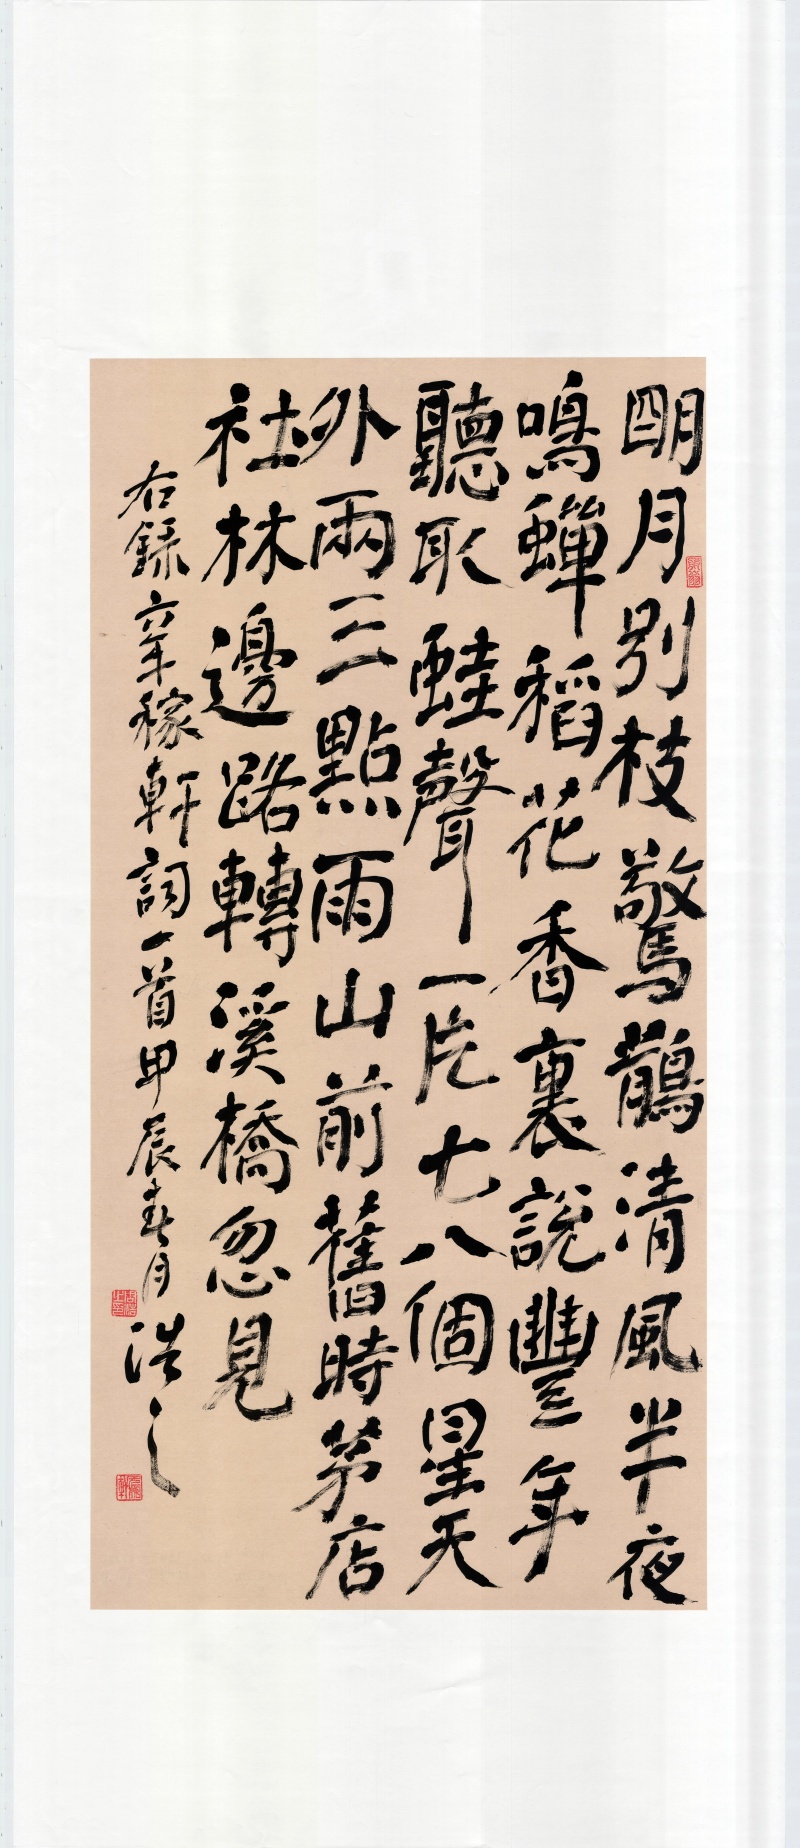 明月別枝驚鵲清風半夜
鳴蟬稻花香裏說豐年
聽取蛙聲一片七八個星天
外兩三點雨山前舊時茅店
社林邊路轉溪橋忽見
右錄辛稼軒詞一首甲辰春月
浩之